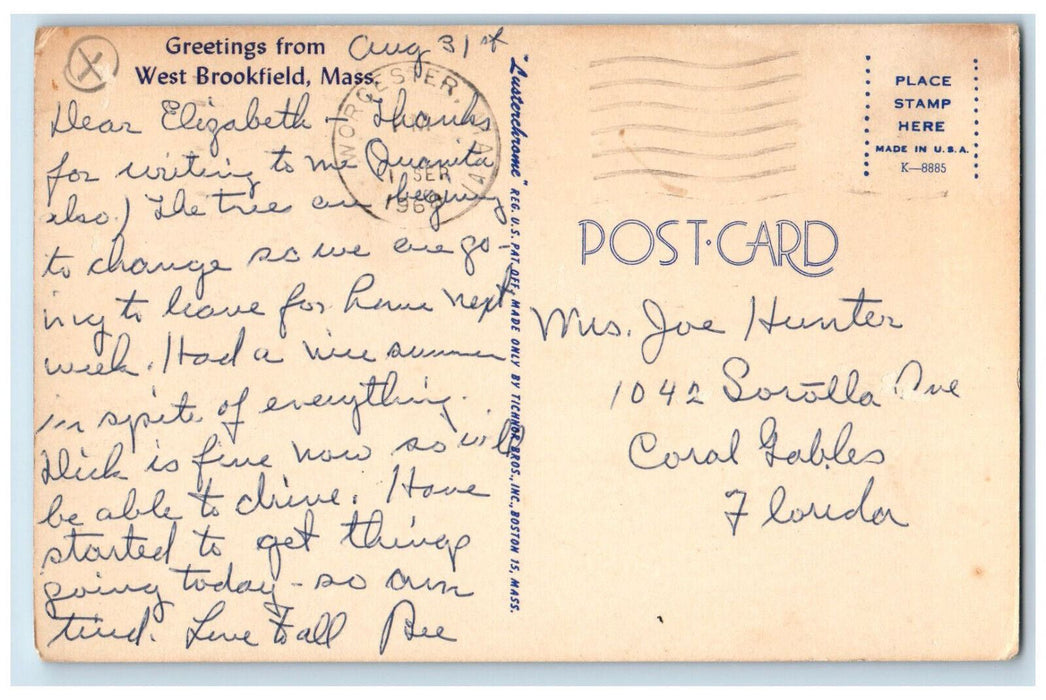 Greetings from
West Brookfield, Mass.
Aug 31st
Dear Elizabeth - Thanks
for writing to me (Juanita
also) The trees are beginng
to change so we are go-
ing to leave for home next
week. Had a nice summer
in spite of everything.
Dick is fine now so will
be able to drive. Have
started to get things
going today - so am
tired. Love to all Bee
WORCESTER, MA
1 SEP
196
"Lusterchrome" REG. U.S. PAT. OFF. MADE ONLY BY TICHNOR BROS., INC., BOSTON 15, MASS.
PLACE
STAMP
HERE
MADE IN U.S.A.
K—8885
POST·CARD
Mrs. Joe Hunter
1042 Sorolla Ave
Coral Gables
Florida